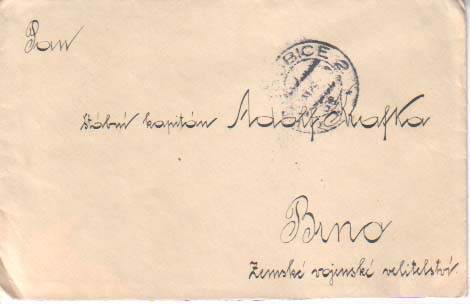 Pan
BICE 2
štábní kapitán Adolf Kafka
Brno
Zemské vojenské velitelství.